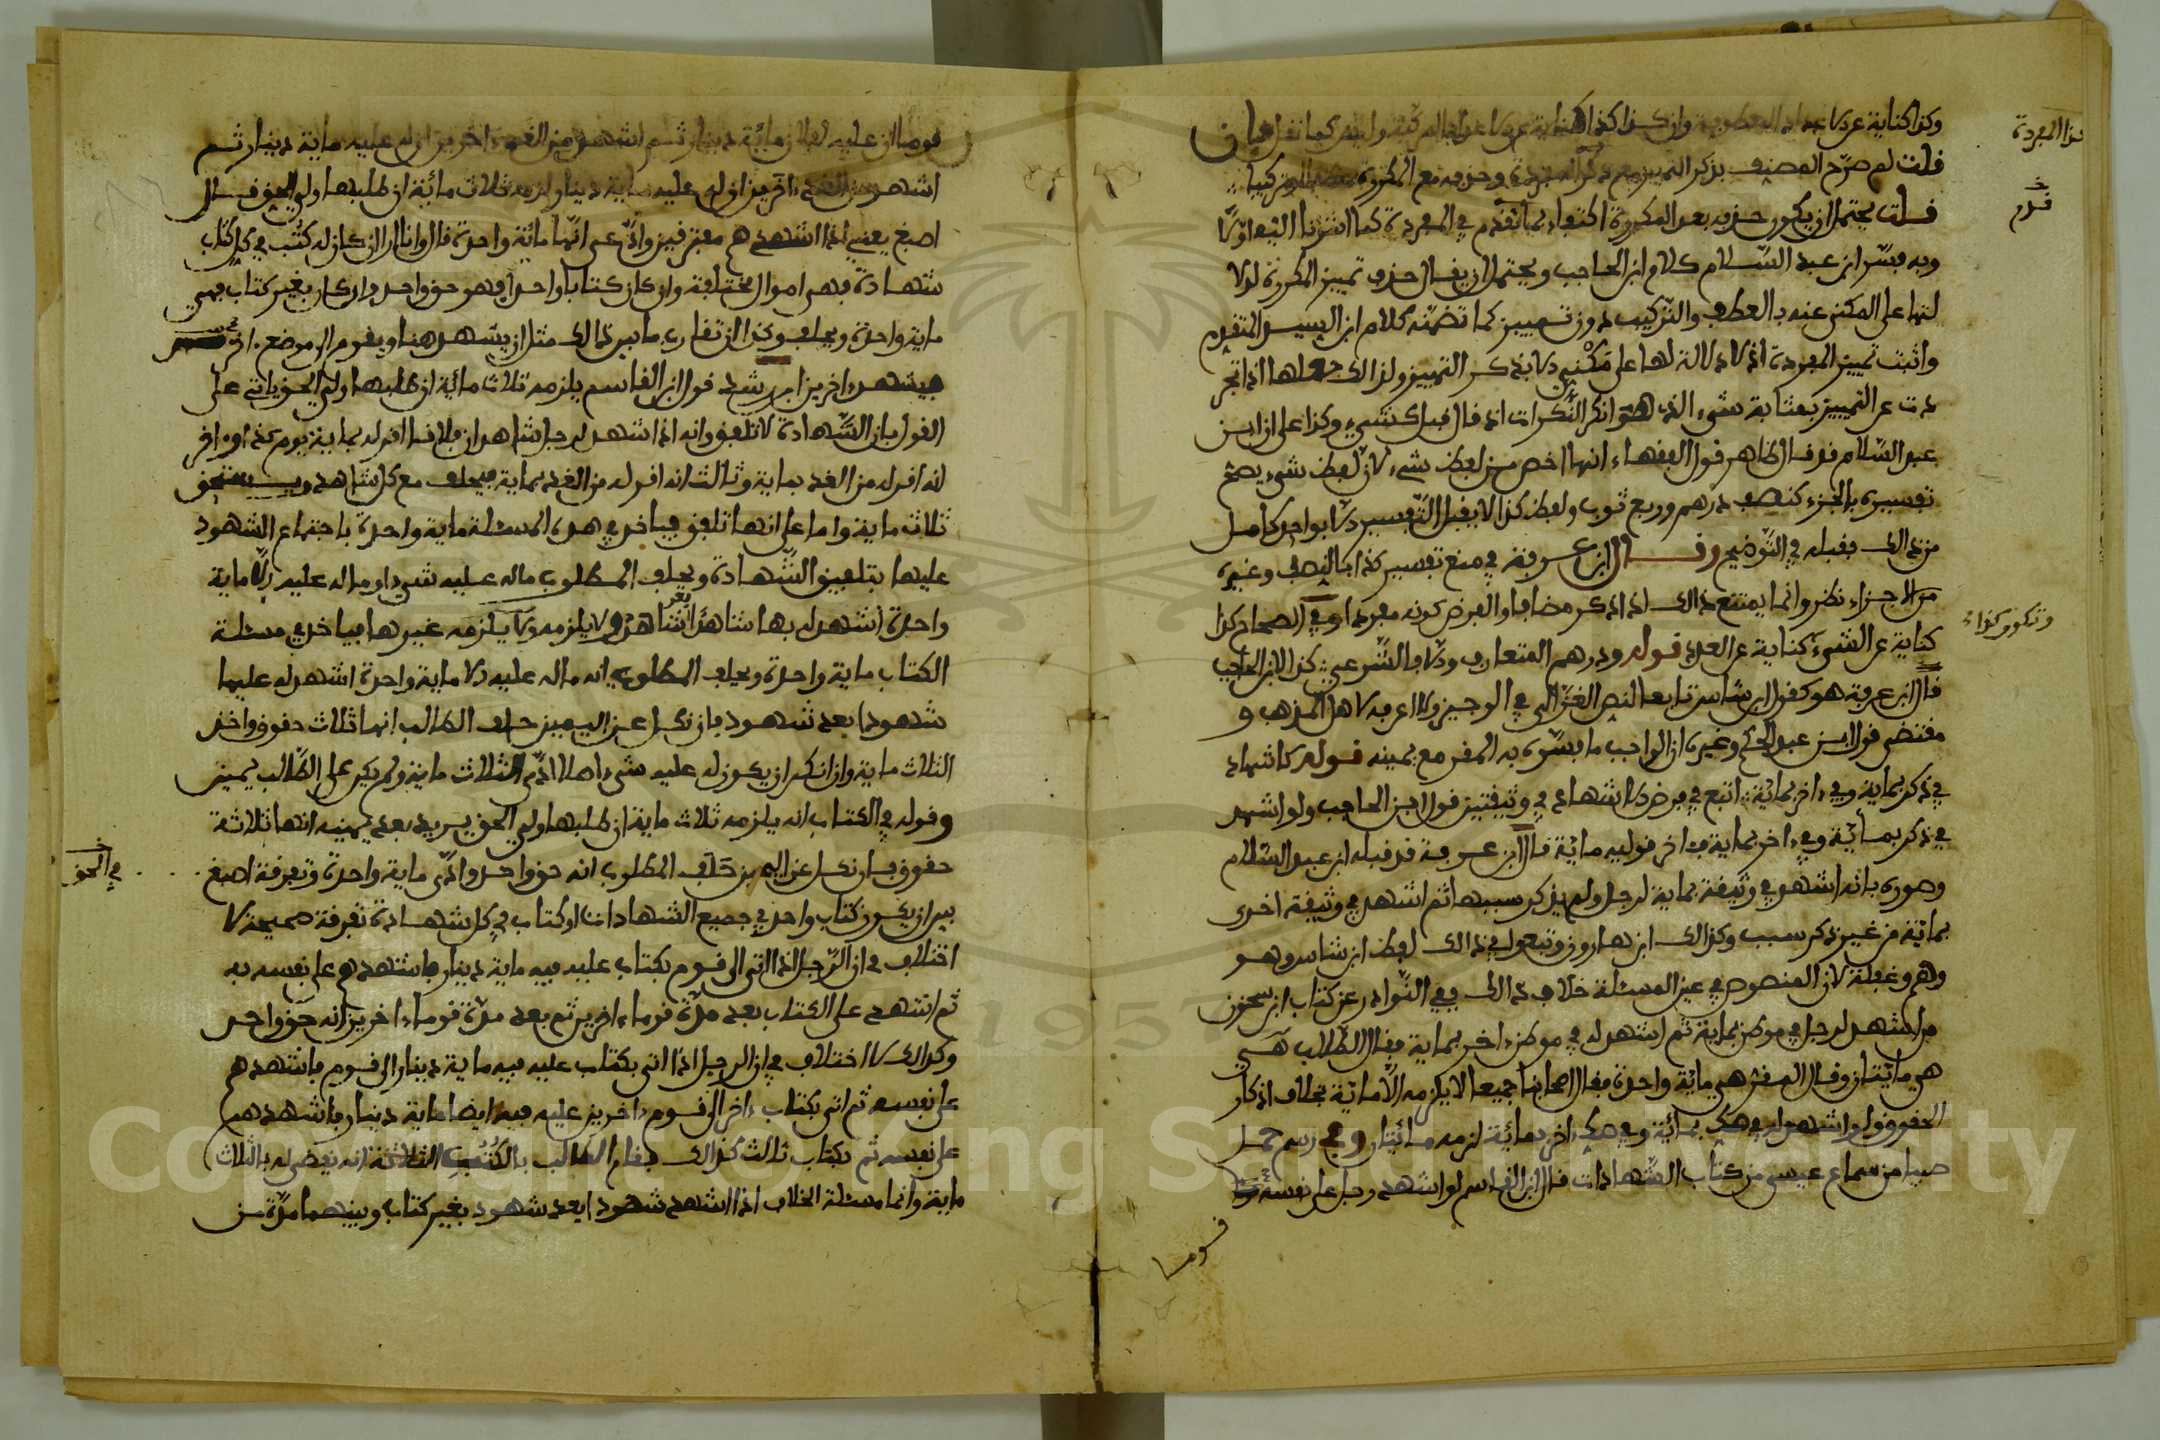 وكذا كناية عن
كذا المفردة
قلت لم صرّح المصنف بذكر التمييز مع وحذفه مع المكررة
قلت يحتمل ان يكون حذفه بعد المكررة اكتفاء بما تقدم في المفردة كما اشرنا اليه اوّلا
قدم
وبه فسّر ابن عبد السّلام كلام ابن الحاجب ويحتمل ان يقال حذف تمييز المكررة لدلا
لتها على المكنى عنه بالعطف والتركيب دون تمييز كما تضمّنه كلام ابن السيد المتقدم
واثبت تمييز المفردة اذ لا دلالة لها على مَكْنِي الا بذكر التمييز ولذلك جعلها اذا تجر
دت عن التمييز بمثابة شيء الذي هو انكر النّكرات اذ قال قبل كشيء وكذا على ان ابن
عبد السّلام قد قال ظاهر قول الفقهاء انها اخص من لفظ شيء لان لفظ شيء يصح
تفسيره بالجزء كنصف درهم وربع ثوب ولفظ كذا لا يقبل التّفسير الا بواحد كامل
من ذلك فقبله في التّوضيح وقال ابن عرفة في منع تفسير كذا بالنصف وغيره
من الاجزاء نظر وانما يمتنع ذلك اذا ذكر مضافا والفرض كونه مفردا وفي الصحاح كذا
كناية عن الشيء كناية عن العدد قوله ودرهم المتعارف والا فالشّرعي كذا لابن الحاجب
وتكون كذا
قال ابن عرفة هو كقول ابن شاس تابعا لنص الغزّالي في الوجيز ولا اعرفه لاهل المذهب و
مقتضى قول ابن عبد الحكم وغيره ان الواجب ما فسّره به المقر مع يمينه قوله كاشهاد
في ذكر بماية وفي اخر بمائة اتبع في فرض الاشهاد في وثيقتين قول ابن الحاجب ولو اشهد
في ذكر بمائة وفي اخر بماية فاخر قوليه مائة قال ابن عرفة قد قبله ابن عبد السّلام
وصوره بانه اشهد في وثيقة بماية لرجل ولم يذكر سببها ثم اشهد في وثيقة اخرى
بمائة من غير ذكر سبب وكذلك ابن هارون وتبعوا في ذلك لفظ ابن شاس وهو
وهم وغفلة لان المنصوص في عين المسئلة خلاف ذلك ففي النّوادر عن كتاب ابن سحنون
من اشهد لرجل في موطن بماية ثم اشهد له في موطن اخر بماية فقال الطّالب هي
هي مائتان وقال المقر هي مائة واحدة فقال اصحابنا جميعا لا يلزمه الّا مائة بخلاف اذكار
الحقوق ولو اشهد له في صك بمائة وفي صك اخر بمائة لزمه مائتان وفي رسم حمل
صبيا من سماع عيسى من كتاب الشّهادات قال ابن القاسم لو اشهد رجل على نفسه
قوما
قوما ان عليه لفلان مائة دينار ثم اشهد من الغد اخرين ان له عليه ماية دينار ثم
اشهد من الغد آخرين ان له عليه ماية دينار لزمه ثلاث مائة ان طلبها ولي الحق قال
اصبغ يعني اذا اشهدهم مفترقين وادّعى انّها مائة واحدة قال وانا ارى ان كان له كتب في كل كتاب
شهادة فهي اموال مختلفة وان كان كتابا واحدا فهو حق واحد وان كان بغير كتاب فهي
ماية واحدة ويحلف وكذا ان تقارب ما بين ذلك مثل ان يشهد هنا ويقوم الى موضع اخر
فيشهد اخرين ابن رشد قول ابن القاسم يلزمه ثلاث مائة ان طلبها ولي الحق ياتي على
القول بان الشّهادة لا تلفق وانه اذا شهد لرجل شاهد ان فلانا اقر له بماية يوم كذا واخر
انه اقر له من الغد بماية وثالث انه اقر له من الغد بماية فيحلف مع كل شاهد ويستحق
ثلاث ماية واما على انها تلفق فياخذ في هذه المسئلة ماية واحدة باجتماع الشهود
عليها بتلفيق الشّهادة ويحلف المطلوب ماله عليه شيء او ماله عليه الا ماية
واحدة اشهد له بها شاهدا بعد شاهد ولا يلزمه غيرها فياخذ في مسئلة
الكتاب ماية واحدة ويحلف المطلوب انه ماله عليه الا ماية واحدة اشهد له عليها
شهودا بعد شهود فان نكل عن اليمين حلف الطالب انها ثلاث حقوق واخذ
الثلاث ماية وان انكر ان يكون له عليه شيء اصلا ادّى الثلاث ماية ولم يكن على الطّالب يمين
وقوله في الكتاب انه يلزمه ثلاث ماية ان طلبها ولي الحق يريد بعد يمينه انها ثلاثة
حقوق فان نكل عن اليمين حَلَف المطلوب انه حق واحد وادّى ماية واحدة وتفرقة اصبغ
في الحق
بين ان يكون كتاب واحد في جميع الشهادات او كتاب في كل شهادة تفرقة صحيحة لا
اختلاف في ان الرّجل اذا اتى الى قوم بكتاب عليه فيه ماية دينار فاشهدهم على نفسه به
ثم اشهد على الكتاب بعد مدّة قوما اخرين ثم بعد مدّة قوما اخرين انه حق واحد
وكذلك لا اختلاف في ان الرجل اذا اتى بكتاب عليه فيه ماية دينار الى قوم فاشهدهم
على نفسه ثم اتى بكتاب اخر الى قوم اخرين عليه فيه ايضا ماية دينار فاشهدهم
على نفسه ثم بكتاب ثالث كذلك فقام الطّالب بالكُتُبِ الثلاثة انه يقضى له بالثلاث
ماية وانما مسئلة الخلاف اذا اشهد شهودا بعد شهود بغير كتاب وبينهما مدّة من
Copyright © King Saud University
1957